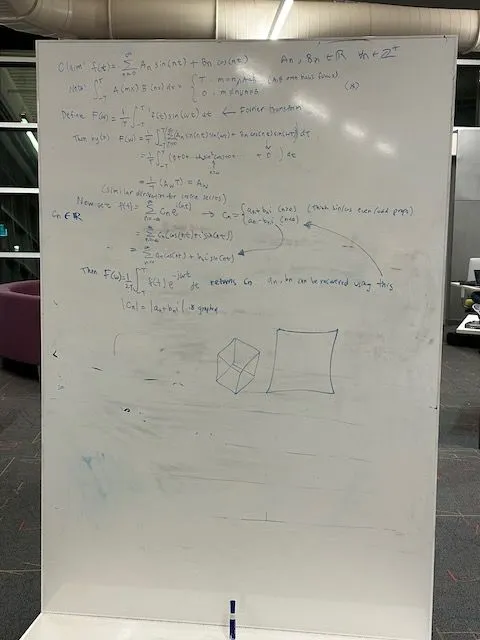 Claim: f(t) = ∑_{n=0}^{∞} A_n sin(nt) + B_n cos(nt)   A_n, B_n ∈ ℝ ∀n ∈ ℤ^+
Note: ∫_{-T}^{T} A(mx) B(nx) dx = { T, m=n, A=B (A,B are trig funcs)
0, m≠n, A≠B   (*)
Define F(w) = 1/T ∫_{-T}^{T} f(t) sin(wt) dt ← Fourier Transform
Then by (*) F(w) = 1/T ∫_{-T}^{T} [∑ A_n sin(nt) sin(wt) + B_n cos(nt) sin(wt)] dt
= 1/T ∫_{-T}^{T} + 0) dt
= 1/T (A_w T) = A_w
(similar derivation for cosine series)
Now set f(t) = ∑ C_n e^{i(nt)} → C_n = { a_n + b_n i (n≥0)
a_n - b_n i (n<0) (Think sin/cos even/odd props)
C_n ∈ ℝ
= ∑ C_n (cos(nt) + i sin(nt))
= ∑ a_n cos(nt) + b_n i sin(nt)
Then F(w) = 1/2T ∫_{-T}^{T} f(t) e^{-jwt} dt returns C_n a_n, b_n can be recovered using this
|C_n| = |a_n + b_n i| is graphed